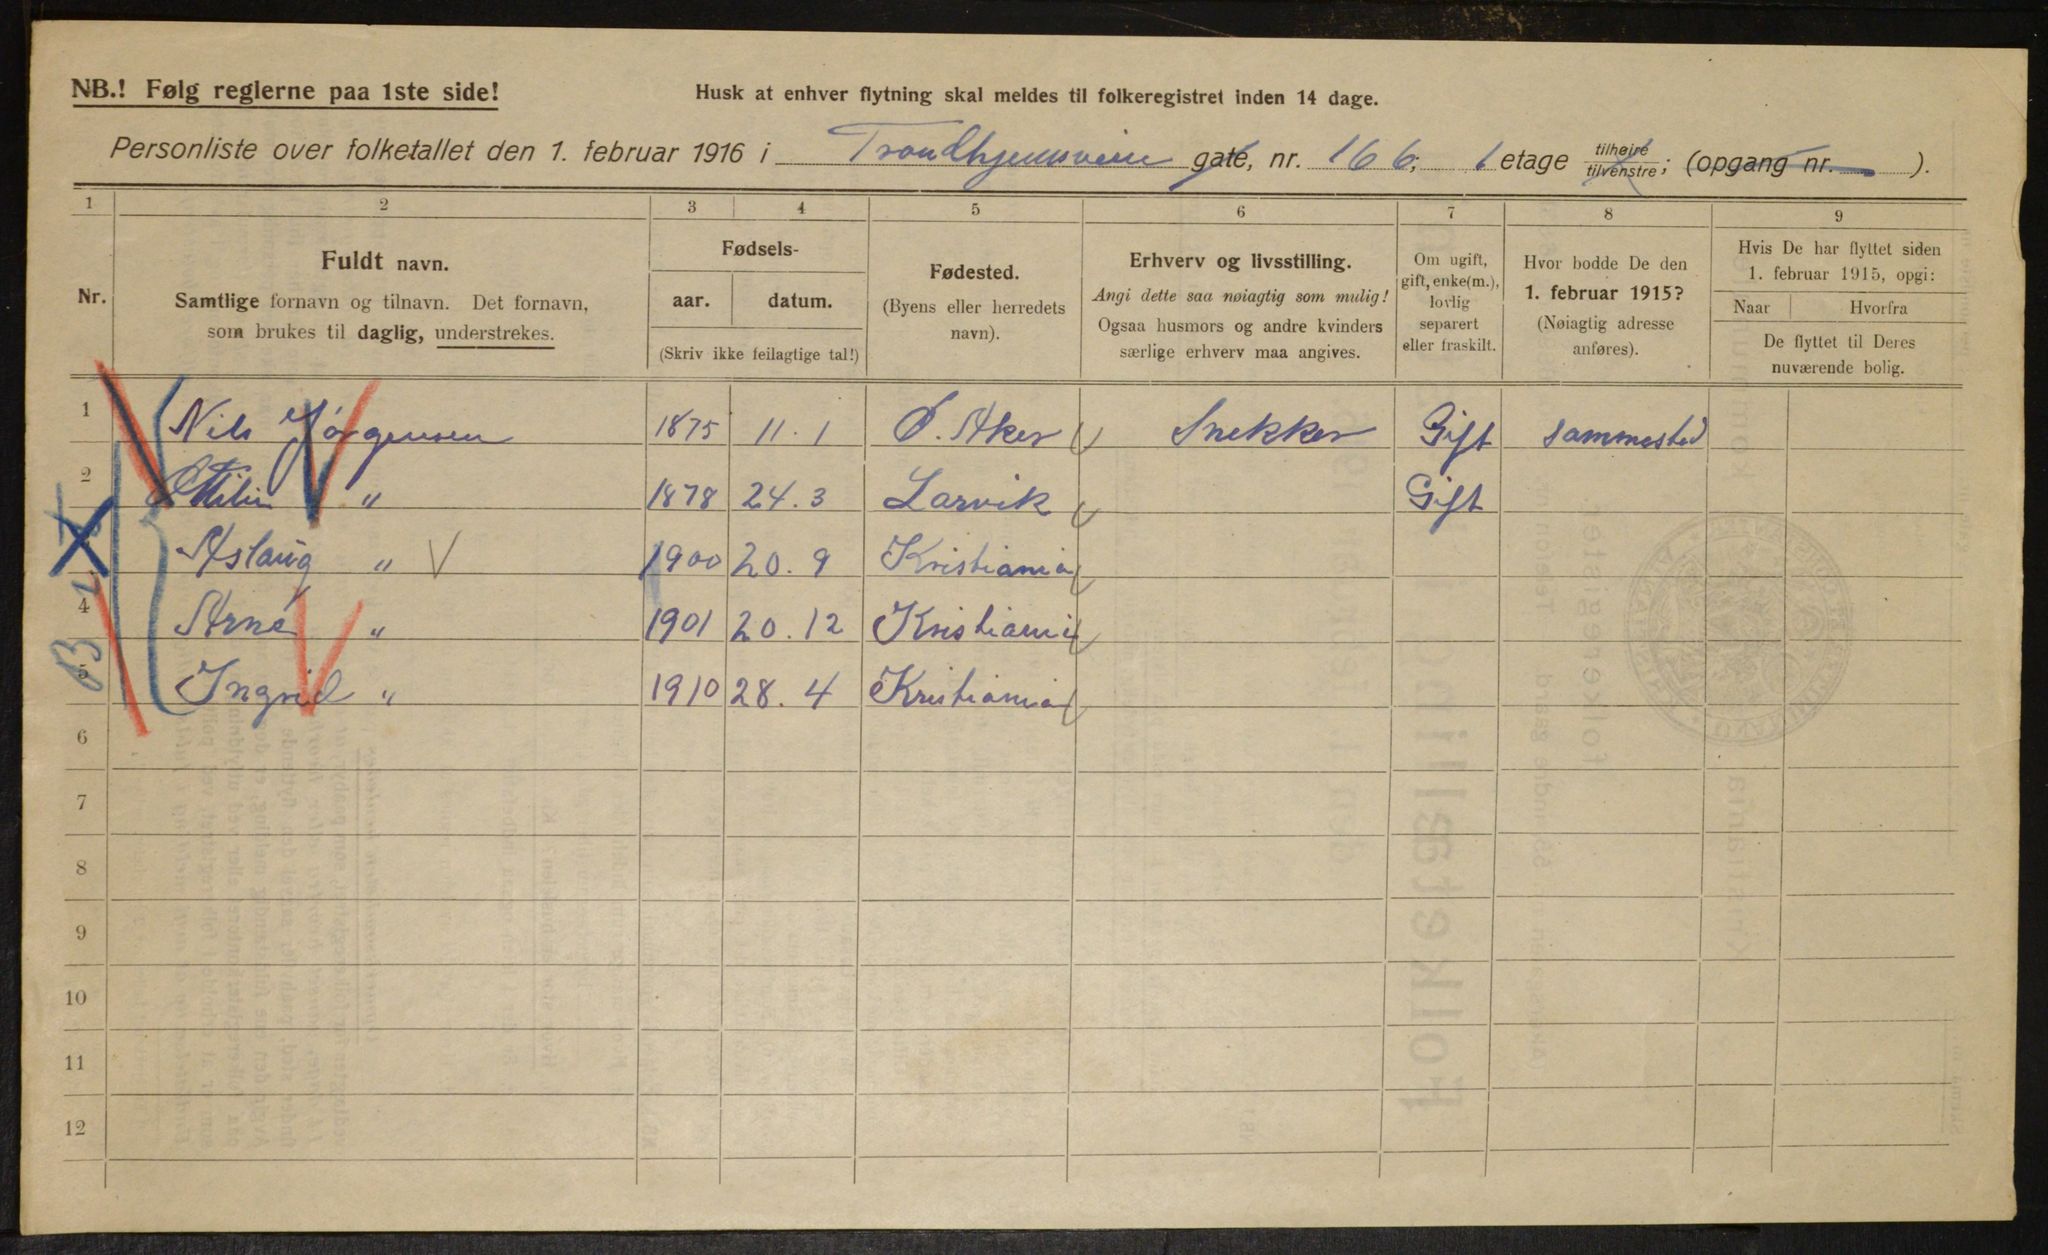 NB.! Følg reglerne paa 1ste side!
Husk at enhver flytning skal meldes til folkeregistret inden 14 dage.
Personliste over folketallet den 1. februar 1916 i Trondhjemsveien gate, nr. 166; 1 etage tilhøire tilvenstre; (opgang nr. ).
1 2 3 4 5 6 7 8 9
Nr.
Fuldt navn.
Samtlige fornavn og tilnavn. Det fornavn,
som brukes til daglig, understrekes.
Fødsels-
aar. datum.
(Skriv ikke feilagtige tal!)
Fødested.
(Byens eller herredets
navn).
Erhverv og livsstilling.
Angi dette saa nøiagtig som mulig!
Ogsaa husmors og andre kvinders
særlige erhverv maa angives.
Om ugift,
gift, enke(m.),
lovlig
separert
eller fraskilt.
Hvor bodde De den
1. februar 1915?
(Nøiagtig adresse
anføres).
Hvis De har flyttet siden
1. februar 1915, opgi:
Naar Hvorfra
De flyttet til Deres
nuværende bolig.
1 Nils Jørgensen 1875 11.1 Ø. Aker Snekker Gift sammested
2 " 1878 24.3 Larvik Gift
Aslaug " 1900 20.9 Kristiania
4 Arne " 1901 20.12 Kristiania
5 Ingrid " 1910 28.4 Kristiania
6
7
8
9
10
11
12